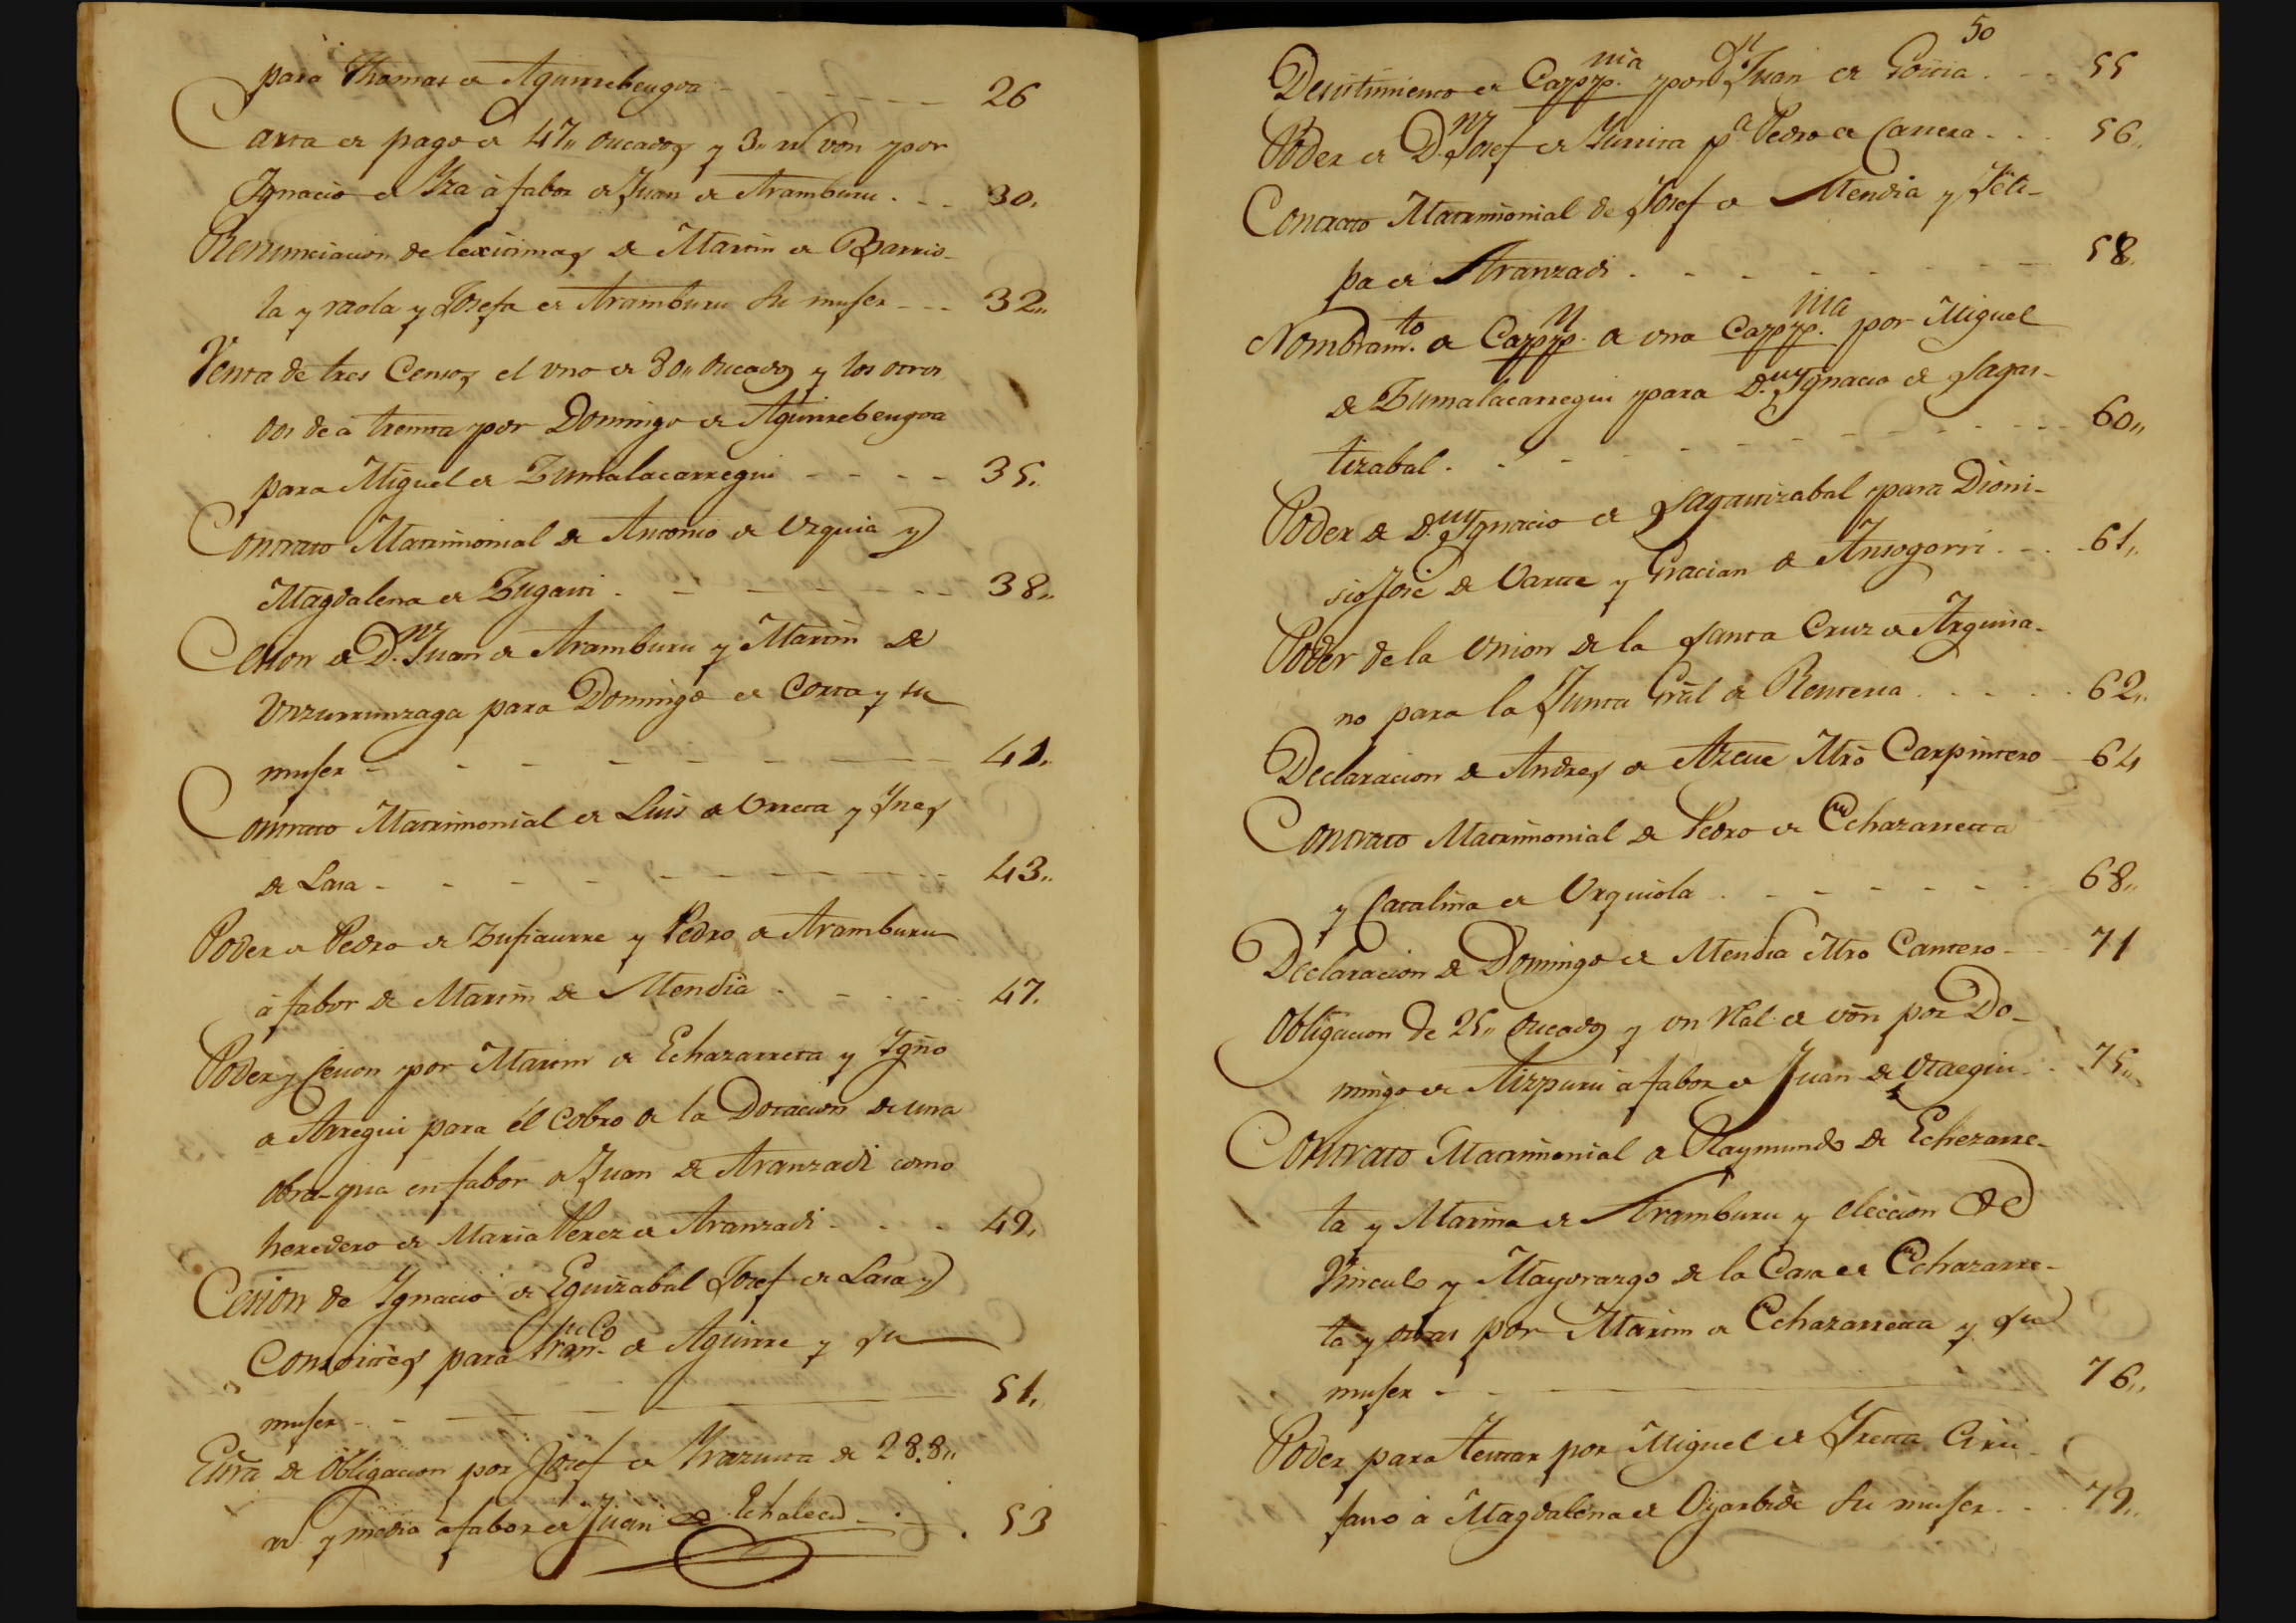 para Thomas de Aguirrebengoa - - - - - 26
Carta de pago de 47,, ducados y 3,, rs von por
Ignacio de Yza à fabor de Juan de Aramburu . - - 30.
Renunciacion de lexitimas de Martin de Barrio-
la y raola y Josefa de Aramburu su muger - - - 32,,
Venta de tres Censos el vno de 80,, ducados y los otros
dos de à treinta por Domingo de Aguirrebengoa
para Miguel de Zumalacarregui - - - - 35.
Contrato Matrimonial de Antonio de Vrquia y
Magdalena de Zugasti . - - - - - - 38,,
Cesion de D.n Juan de Aramburu y Martin de
Vnzurrunzaga para Domingo de Corta y su
muger - - - - - - - - 41.
Contrato Matrimonial de Luis de Vrreta y Ines
de Lasa - - - - - - - - 43,,
Poder de Pedro de Zufiaurre y Pedro de Aramburu
à fabor de Martin de Mendia . . - . . . 47.
Poder y Cesion por Martin de Echazarreta y Ign̄o
de Arregui para él cobro de la Dotacion de una
obra-pia en fabor de Juan de Aranzadi como
heredero de Maria Perez de Aranzadi - . . . 49.
Cesion de Ignacio de Eguizabal Josef de Lasa y
Consortes para Fran.co de Aguirre y su
muger - - - - - - 51.
Escr̄a de Obligacion por Josef de Yrazusta de 288,,
rs y medio à fabor de Juan de Echaleco - . - . 53
50
Desistimiento de Capp.nia por D.n Juan de Goicia . - - 55
Poder de D.n Josef de Yurrita p.a Pedro de Carrera - . . 56,,
Contrato Matrimonial de Josef de Mendia y Feli-
pa de Aranzadi . - - - - - - - 58.
Nombram.to de Capp.n de vna Capp.nia por Miguel
de Zumalacarregui para D.n Ignacio de Sagas-
tizabal . - - - - - - - - - 60,,
Poder de D.n Ignacio de Sagastizabal para Dioni-
sio José de Oarue y Gracian de Ansogorri . - . 61,,
Poder de la Vnion de la Santa Cruz de Arguisa-
no para la Junta Grāl de Renteria . . . . . 62,,
Declaracion de Andres de Azcue Mrō Carpintero - 64
Contrato Matrimonial de Pedro de Echazarreta
y Catalina de Vrquiola . . - - - - - . 68,,
Declaracion de Domingo de Mendia Mro Cantero - - 71
Obligacion de 25,, ducados y vn Ral de vōn por Do-
mingo de Aizpuru à fabor de Juan de Otaegui . . 75,,
Contrato Matrimonial de Raymundo de Echezarre-
ta y Marina de Aramburu y eleccion de
Vinculo y Mayorazgo de la Casa de Echazarre-
ta y otras por Martin de Echazarreta y su
muger - - - 76,,
Poder para testar por Miguel de Yreta Ciru-
jano à Magdalena de Oyarbide su muger . - . 79,,